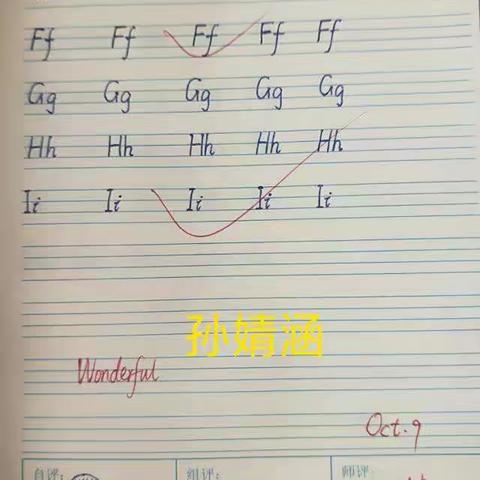 Ff Ff Ff Ff Ff
Gg Gg Gg Gg Gg
Hh Hh Hh Hh Hh
Ii Ii Ii Ii Ii
孙婧涵
Wonderful
Oct.9
自评: 组评: 师评: